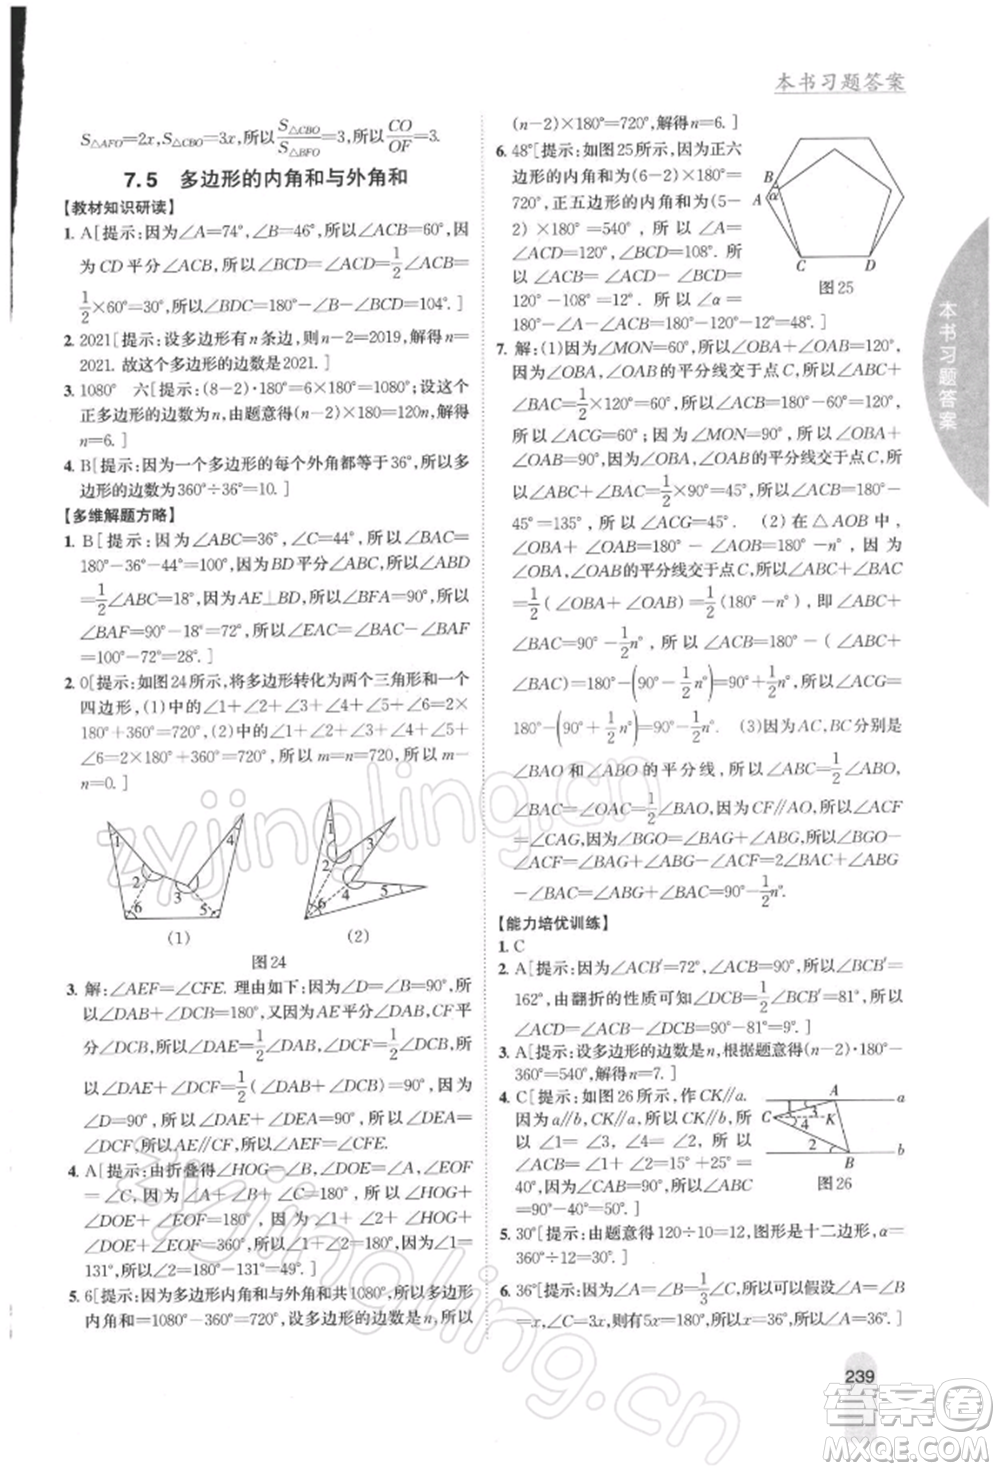 本书习题答案
S△AFO=2x,S△CBO=3x,所以S△CBO/S△BFO=3,所以CO/OF=3.
7.5 多边形的内角和与外角和
【教材知识研读】
1. A[提示:因为∠A=74°,∠B=46°,所以∠ACB=60°,因
为CD平分∠ACB,所以∠BCD=∠ACD=1/2∠ACB=
1/2×60°=30°,所以∠BDC=180°-∠B-∠BCD=104°.]
2. 2021[提示:设多边形有n条边,则n-2=2019,解得n=
2021.故这个多边形的边数是2021.]
3. 1080° 六[提示:(8-2)·180°=6×180°=1080°;设这个
正多边形的边数为n,由题意得(n-2)·180=120n,解得
n=6.]
4. B[提示:因为一个多边形的每个外角都等于36°,所以多
边形的边数为360°÷36°=10.]
【多维解题方略】
1. B[提示:因为∠ABC=36°,∠C=44°,所以∠BAC=
180°-36°-44°=100°.因为BD平分∠ABC,所以∠ABD
=1/2∠ABC=18°,因为AE⊥BD,所以∠BFA=90°,所以
∠BAF=90°-18°=72°,所以∠EAC=∠BAC-∠BAF
=100°-72°=28°.]
2. 0[提示:如图24所示,将多边形转化为两个三角形和一个
四边形,(1)中的∠1+∠2+∠3+∠4+∠5+∠6=2×
180°+360°=720°,(2)中的∠1+∠2+∠3+∠4+∠5+
∠6=2×180°+360°=720°,所以m=n=720,所以m-
n=0.]
1 4 2 3 6 5
(1)
1 3 2 4 5 6
(2)
图24
3. 解:∠AEF=∠CFE. 理由如下:因为∠D=∠B=90°,所
以∠DAB+∠DCB=180°,又因为AE平分∠DAB,CF平
分∠DCB,所以∠DAE=1/2∠DAB,∠DCF=1/2∠DCB,所
以∠DAE+∠DCF=1/2(∠DAB+∠DCB)=90°,因为
∠D=90°,所以∠DAE+∠DEA=90°,所以∠DEA=
∠DCF,所以AE∥CF,所以∠AEF=∠CFE.
4. A[提示:由折叠得∠HOG=∠B,∠DOE=∠A,∠EOF
=∠C,因为∠A+∠B+∠C=180°,所以∠HOG+
∠DOE+∠EOF=180°,因为∠1+∠2+∠HOG+
∠DOE+∠EOF=360°,所以∠1+∠2=180°,因为∠1=
131°,所以∠2=180°-131°=49°.]
5. 6[提示:因为多边形内角和与外角和共1080°,所以多边形
内角和=1080°-360°=720°,设多边形的边数是n,所以
(n-2)×180°=720°,解得n=6.]
6. 48°[提示:如图25所示,因为正六
边形的内角和为(6-2)×180°=
720°,正五边形的内角和为(5-
2)×180°=540°,所以∠ACD
=120°,∠BCD=108°,所以
∠BCA=∠ACD-∠BCD=
120°-108°=12°,所以∠α=
180°-120°-12°=48°.]
B α A C D
图25
7. 解:(1)因为∠MON=60°,所以∠OBA+∠OAB=120°,
因为∠OBA,∠OAB的平分线交于点C,所以∠ABC+
∠BAC=1/2×120°=60°,所以∠ACB=180°-60°=120°,所
以∠ACG=60°;因为∠MON=90°,所以∠OBA+
∠OAB=90°,因为∠OBA,∠OAB的平分线交于点C,所
以∠ABC+∠BAC=1/2×90°=45°,所以∠ACB=180°-
45°=135°,所以∠ACG=45°. (2)在△AOB中,
∠OBA+∠OAB=180°-∠AOB=180°-n°,因为
∠OBA,∠OAB的平分线交于点C,所以∠ABC+∠BAC
=1/2(∠OBA+∠OAB)=1/2(180°-n°),即∠ABC+
∠BAC=90°-1/2n°,所以∠ACB=180°-(∠ABC+
∠BAC)=180°-(90°-1/2n°)=90°+1/2n°,所以∠ACG=
180°-(90°+1/2n°)=90°-1/2n°. (3)因为AC,BC分别是
∠BAO和∠ABO的平分线,所以∠ABC=1/2∠ABO,
∠BAC=∠OAC=1/2∠BAO,因为CF∥OA,所以∠ACF
=∠CAG,所以∠BGO=∠BAG+∠ABG,所以∠BGO
-∠ACF=∠BAG+∠ABG-∠ACF=2∠BAC+∠ABG
-∠BAC=∠ABG+∠BAC=90°-1/2n°.
【能力培优训练】
1. C
2. A[提示:因为∠ACB′=72°,∠ACB=90°,所以∠BCB′=
162°,由翻折的性质可知∠DCB=1/2∠BCB′=81°,所以
∠ACD=∠ACB-∠DCB=90°-81°=9°.]
3. A[提示:设多边形的边数是n,根据题意得(n-2)·180°-
360°=540°,解得n=7.]
4. C[提示:如图26所示,作CK∥a.
因为a∥b,CK∥a,所以CK∥b,所
以∠1=∠3,∠4=∠2,所以
∠ACB=∠1+∠2=90°,因为
∠BAC=40°,所以∠ABC=180°-
40°,因为∠1=40°,所以∠2=
90°-40°=50°.]
A a C 1 3 K 4 2 B b
图26
5. 30°[提示:由题意得120÷10=12,图形是十二边形,α=
360°÷12=30°.]
6. 36°[提示:因为∠A=∠B=1/3∠C,所以可以假设∠A=∠B
=x,∠C=3x,则有5x=180°,所以x=36°,所以∠A=36°.]
本书习题答案
239
zyjingling.cn
zyjingling.cn
答案卷
MXQE.COM